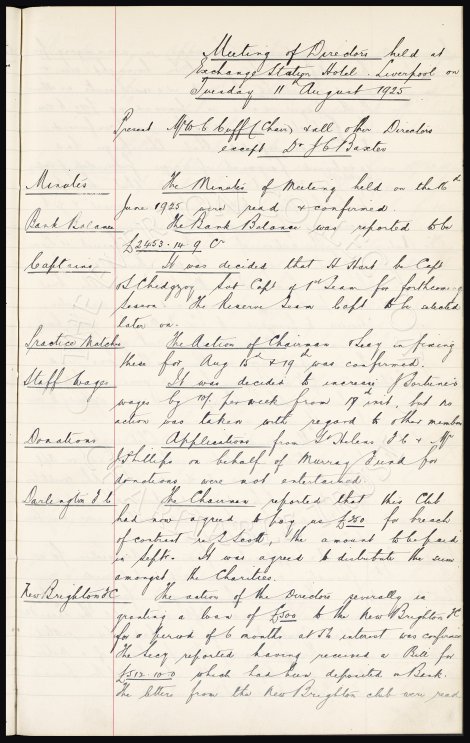 Meeting of Directors held at
Exchange Station Hotel. Liverpool on
Tuesday 11th August 1925
Present Mr W C Cuff (Chair) & all other Directors
except Dr J C Baxter
Minutes The Minutes of Meeting held on the 16th
June 1925 were read & confirmed.
Bank Balance The Bank Balance was reported to be
£2453.14.9 Cr
Captains It was decided that H Hart be Capt
S Chedgzoy Sub Capt of 1st Team for forthcoming
Season. The Reserve Team Capt to be selected
later on.
Practice Matches The Action of Chairman & Secy in fixing
these for Aug 15th & 19th was confirmed.
Staff Wages It was decided to increase
wages by 10/- per week from inst, but no
action was taken with regard to other members
Donations Applications from St Helens F C & Mr
J Phillips on behalf of Murray Fund for
donations were not entertained.
Darlington F C The Chairman reported that this Club
had now agreed to pay us £250 for breach
of contract re S Scott, the amount to be paid
in Sept. It was agreed to distribute the sum
amongst the Charities.
New Brighton F C The action of the Directors severally in
granting a loan of £500 to the New Brighton F C
for a period of 6 months at 5% interest was confirmed
The Secy reported having received a Bill for
£512.10.0 which had been deposited in Bank.
The letters from the New Brighton club were read